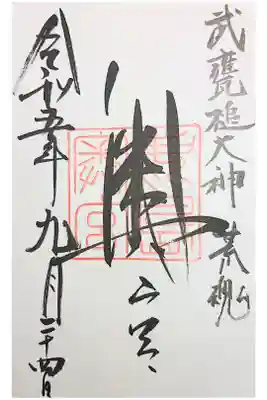 武甕槌大神 荒魂
奥宮
令和五年九月二十四日